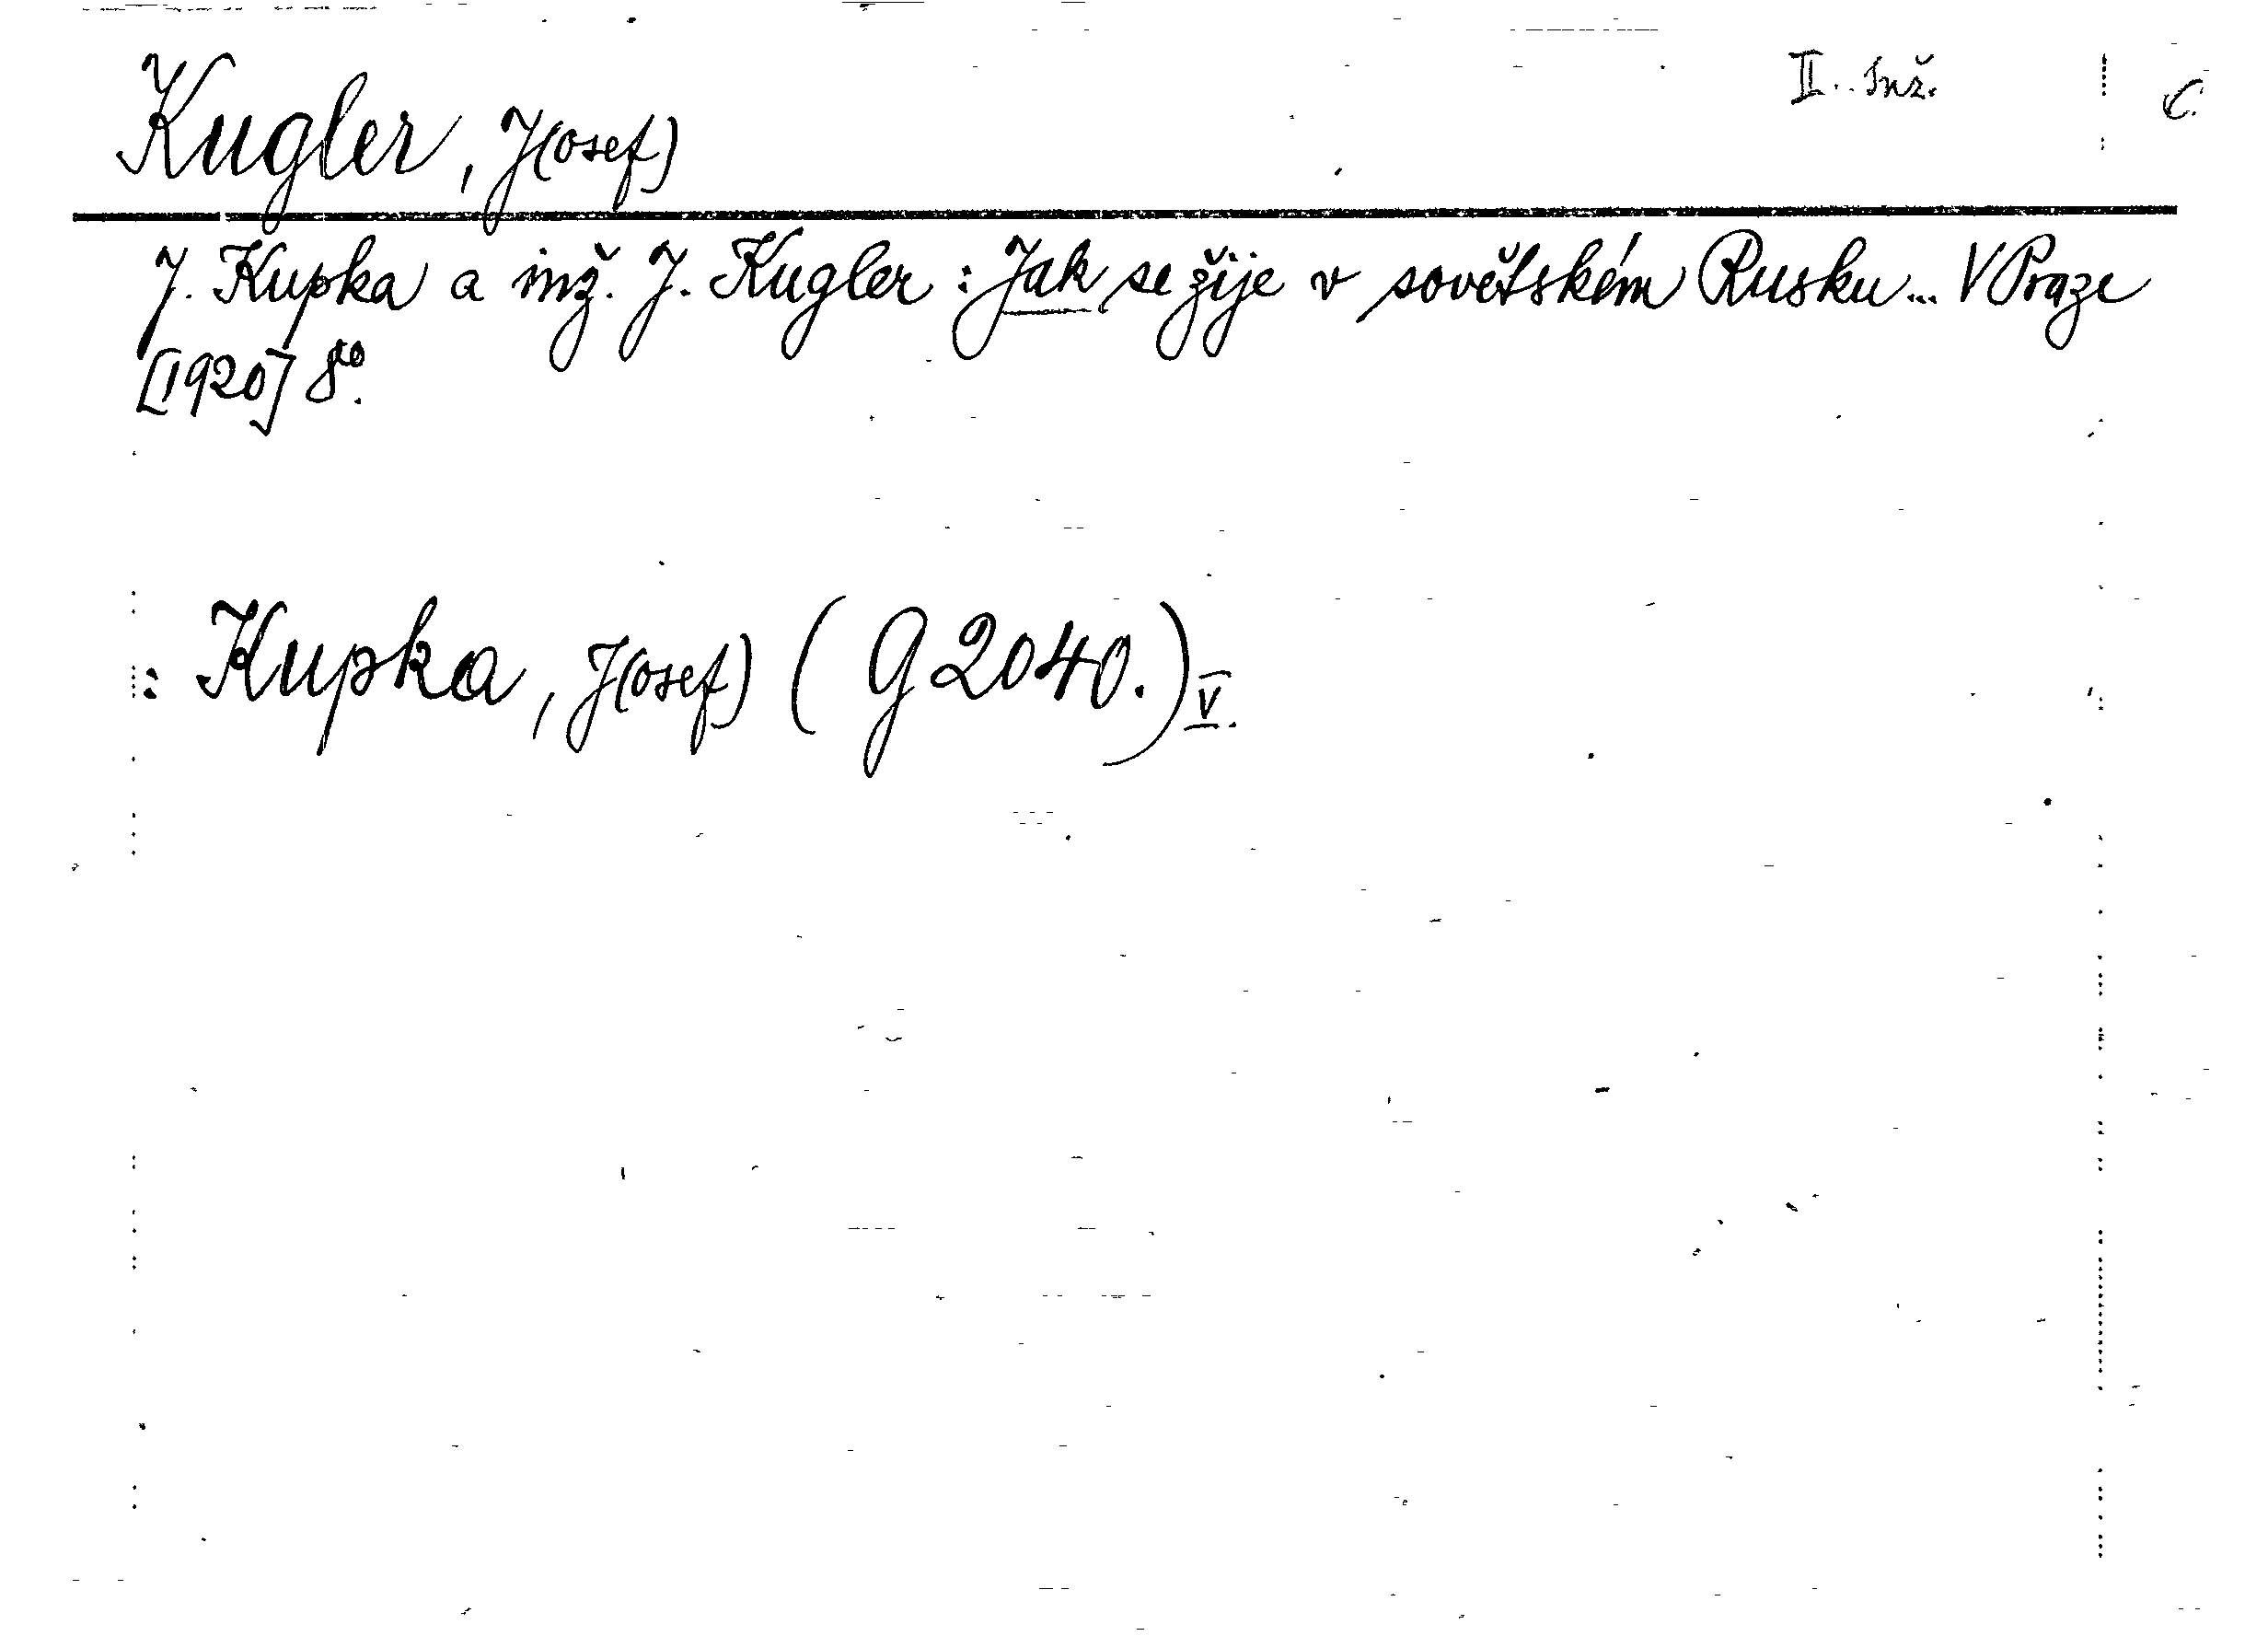 II. Inž.
Kugler, J(osef)
J. Kupka a inž. J. Kugler: Jak se žije v sovětském Rusku... V Praze
[1920] 8°.
: Kupka, J(osef) (G 2040.) V.